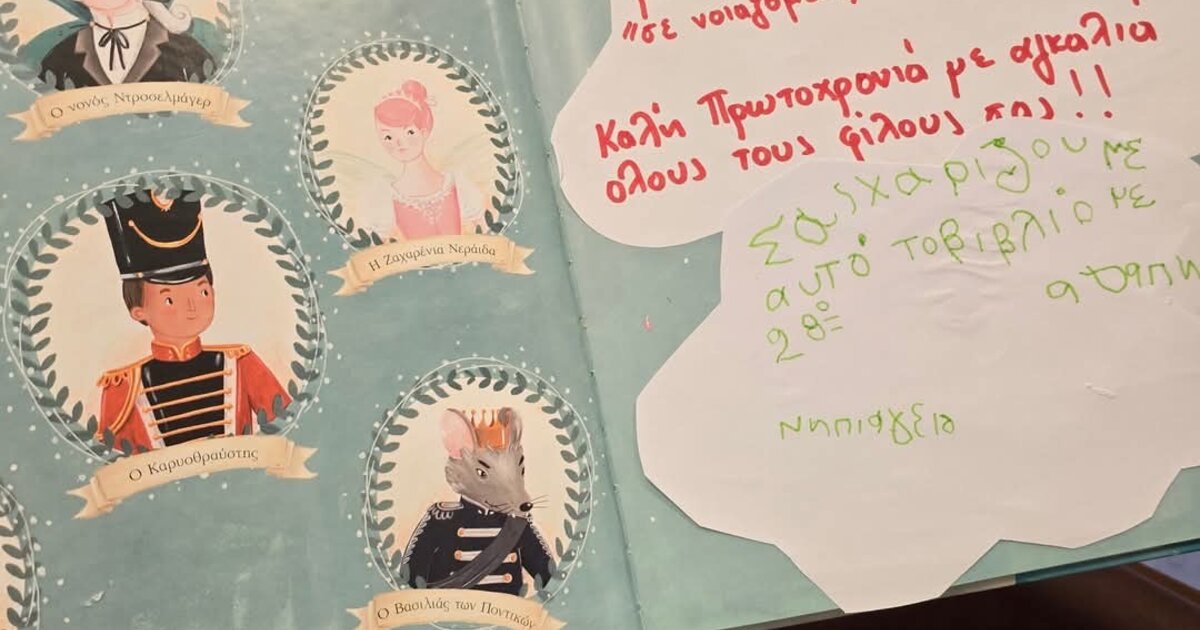 Ο νονός Ντροσελμάγερ
Η Ζαχαρένια Νεράιδα
Ο Καρυοθραύστης
Ο Βασιλιάς των Ποντικών
"σε νοιαζόμα
Καλή Πρωτοχρονιά με αγκαλιά
όλους τους φίλους μας!!
Σας χαρίζουμε
αυτό τοβιβλιο με
αγαπη
28º
νηπιαγεια